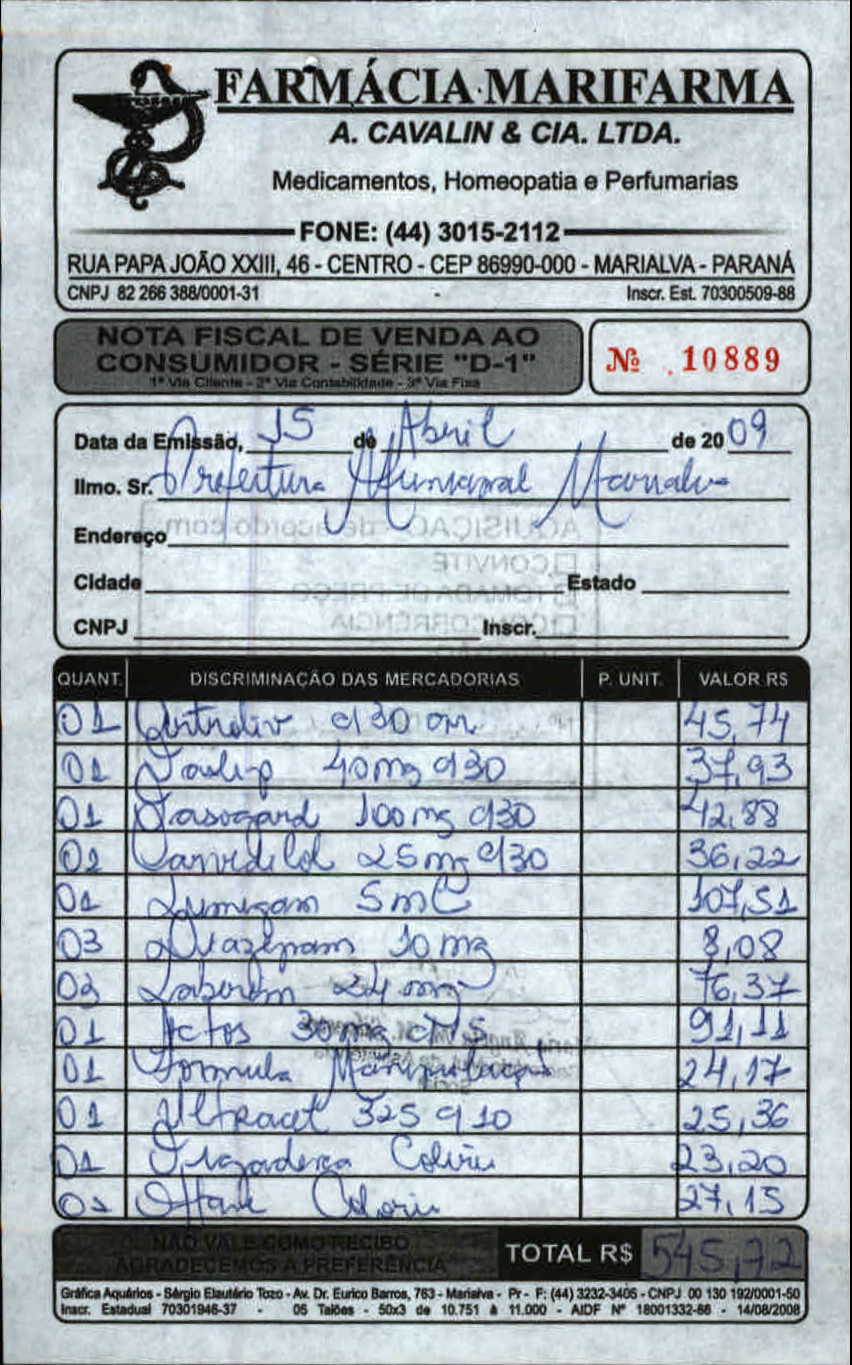 FARMÁCIA MARIFARMA
A. CAVALIN & CIA. LTDA.
Medicamentos, Homeopatia e Perfumarias
FONE: (44) 3015-2112
RUA PAPA JOÃO XXIII, 46 - CENTRO - CEP 86990-000 - MARIALVA - PARANÁ
CNPJ 82 266 388/0001-31 - Inscr. Est. 70300509-88
NOTA FISCAL DE VENDA AO
CONSUMIDOR - SÉRIE "D-1"
1ª Via Cliente - 2ª Via Contabilidade - 3ª Via Fixa
Nº 10889
Data da Emissão, 15 de Abril de 2009
Ilmo. Sr. Prefeitura Municipal Marialva
Endereço
Cidade Estado
CNPJ Inscr.
QUANT. DISCRIMINAÇÃO DAS MERCADORIAS P. UNIT. VALOR R$
01 c/30 45,74
01 40mg c/30 37,93
01 Vasogard 100mg c/30 42,88
02 Carvedilol 25mg c/30 36,22
01 Lumigan 5ml 107,51
03 Diazepam 10mg 8,08
02 Labirin 24mg 76,37
01 Actos 30mg c/15 91,11
01 Formula Manipulação 24,17
01 Ultracet 325 c/10 25,36
01 Colirio 23,20
01 Colirio 27,15
NÃO VALE COMO RECIBO
AGRADECEMOS A PREFERÊNCIA
TOTAL R$ 545,72
Gráfica Aquários - Sérgio Elautério Tozo - Av. Dr. Eurico Barros, 763 - Marialva - Pr - F: (44) 3232-3405 - CNPJ 00 130 192/0001-50
Inscr. Estadual 70301946-37 - 05 Talões - 50x3 de 10.751 à 11.000 - AIDF Nº 18001332-86 - 14/08/2008